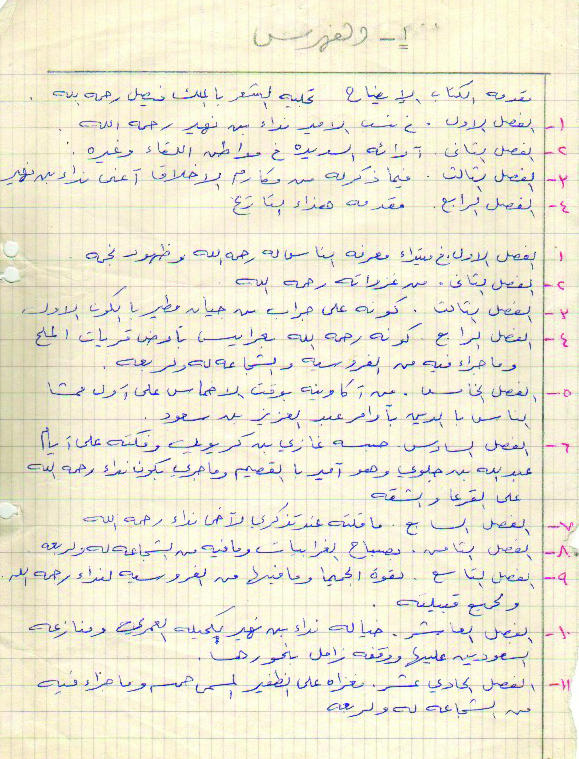 ١- الفهرس
مقدمه الكتاب الإيضاح تحليه الشعر بالملك فيصل رحمه الله .
١- الفصل الاول . في نسب الامير نداء بن نهير رحمه الله .
٢- الفصل الثاني . آرائه السديدة في مواطن اللقاء وغيره .
٣- الفصل الثالث . فيما ذكر له من مكارم الاخلاق آعني نداء بن نهير
٤- الفصل الرابع . مقدمه هذاء التاريخ
١ الفصل الاول . في مبتداء معرفه الناس له رحمه الله وظهور نجمه
٢- الفصل الثاني . من غزواته رحمه الله
٣- الفصل الثالث . كونه على جراب من مطير بالكون الاول
٤- الفصل الرابع . كونه رحمه الله بأرض قريات الملح
وماجراء فيه من الفروسيه والشجاعه له ولربعه .
٥- الفصل الخامس . من آكاوينه بوقت الاخماس على آول
الناس بالدين بآوامر عبد العزيز بن سعود .
٦- الفصل السادس . حبسه غازي بن وفكته على آيام
عبدالله بن جلوي وهو آمير بالقصيم وماجرى بكون نداء رحمه الله
على القرعا والشقه
٧- الفصل السابع . ما قلته عند تذكري لآخي نداء رحمه الله
٨- الفصل الثامن . مصباح ومافيه من الشجاعه له ولربعه
٩- الفصل التاسع . لقوة الجميما ومافيها من الفروسيه لنداء رحمه الله .
ولجميع قبيلته .
١٠- الفصل العاشر . حياله نداء بن نهير ومنازعه
السعوديين عليها ووقفه زامل
١١- الفصل الحادي عشر . مغزاه على الظفير المسمى وماجراء فيه
من الشجاعه له ولربعه